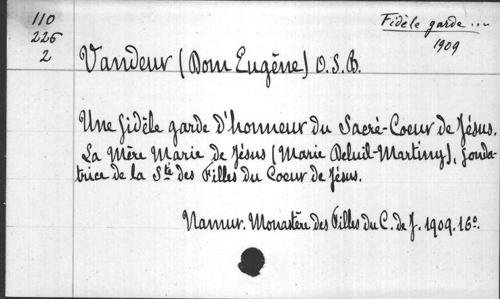 110
226
2
Fidèle garde...
1909
Vandeur (Dom Eugène) O.S.B.
Une fidèle garde d'honneur du Sacré-Coeur de Jésus.
La Mère Marie de Jésus (Marie Deluil-Martiny), fonda-
trice de la Sté des Filles du Coeur de Jésus.
Namur. Monastère des Filles du C. de J. 1909. 16º.